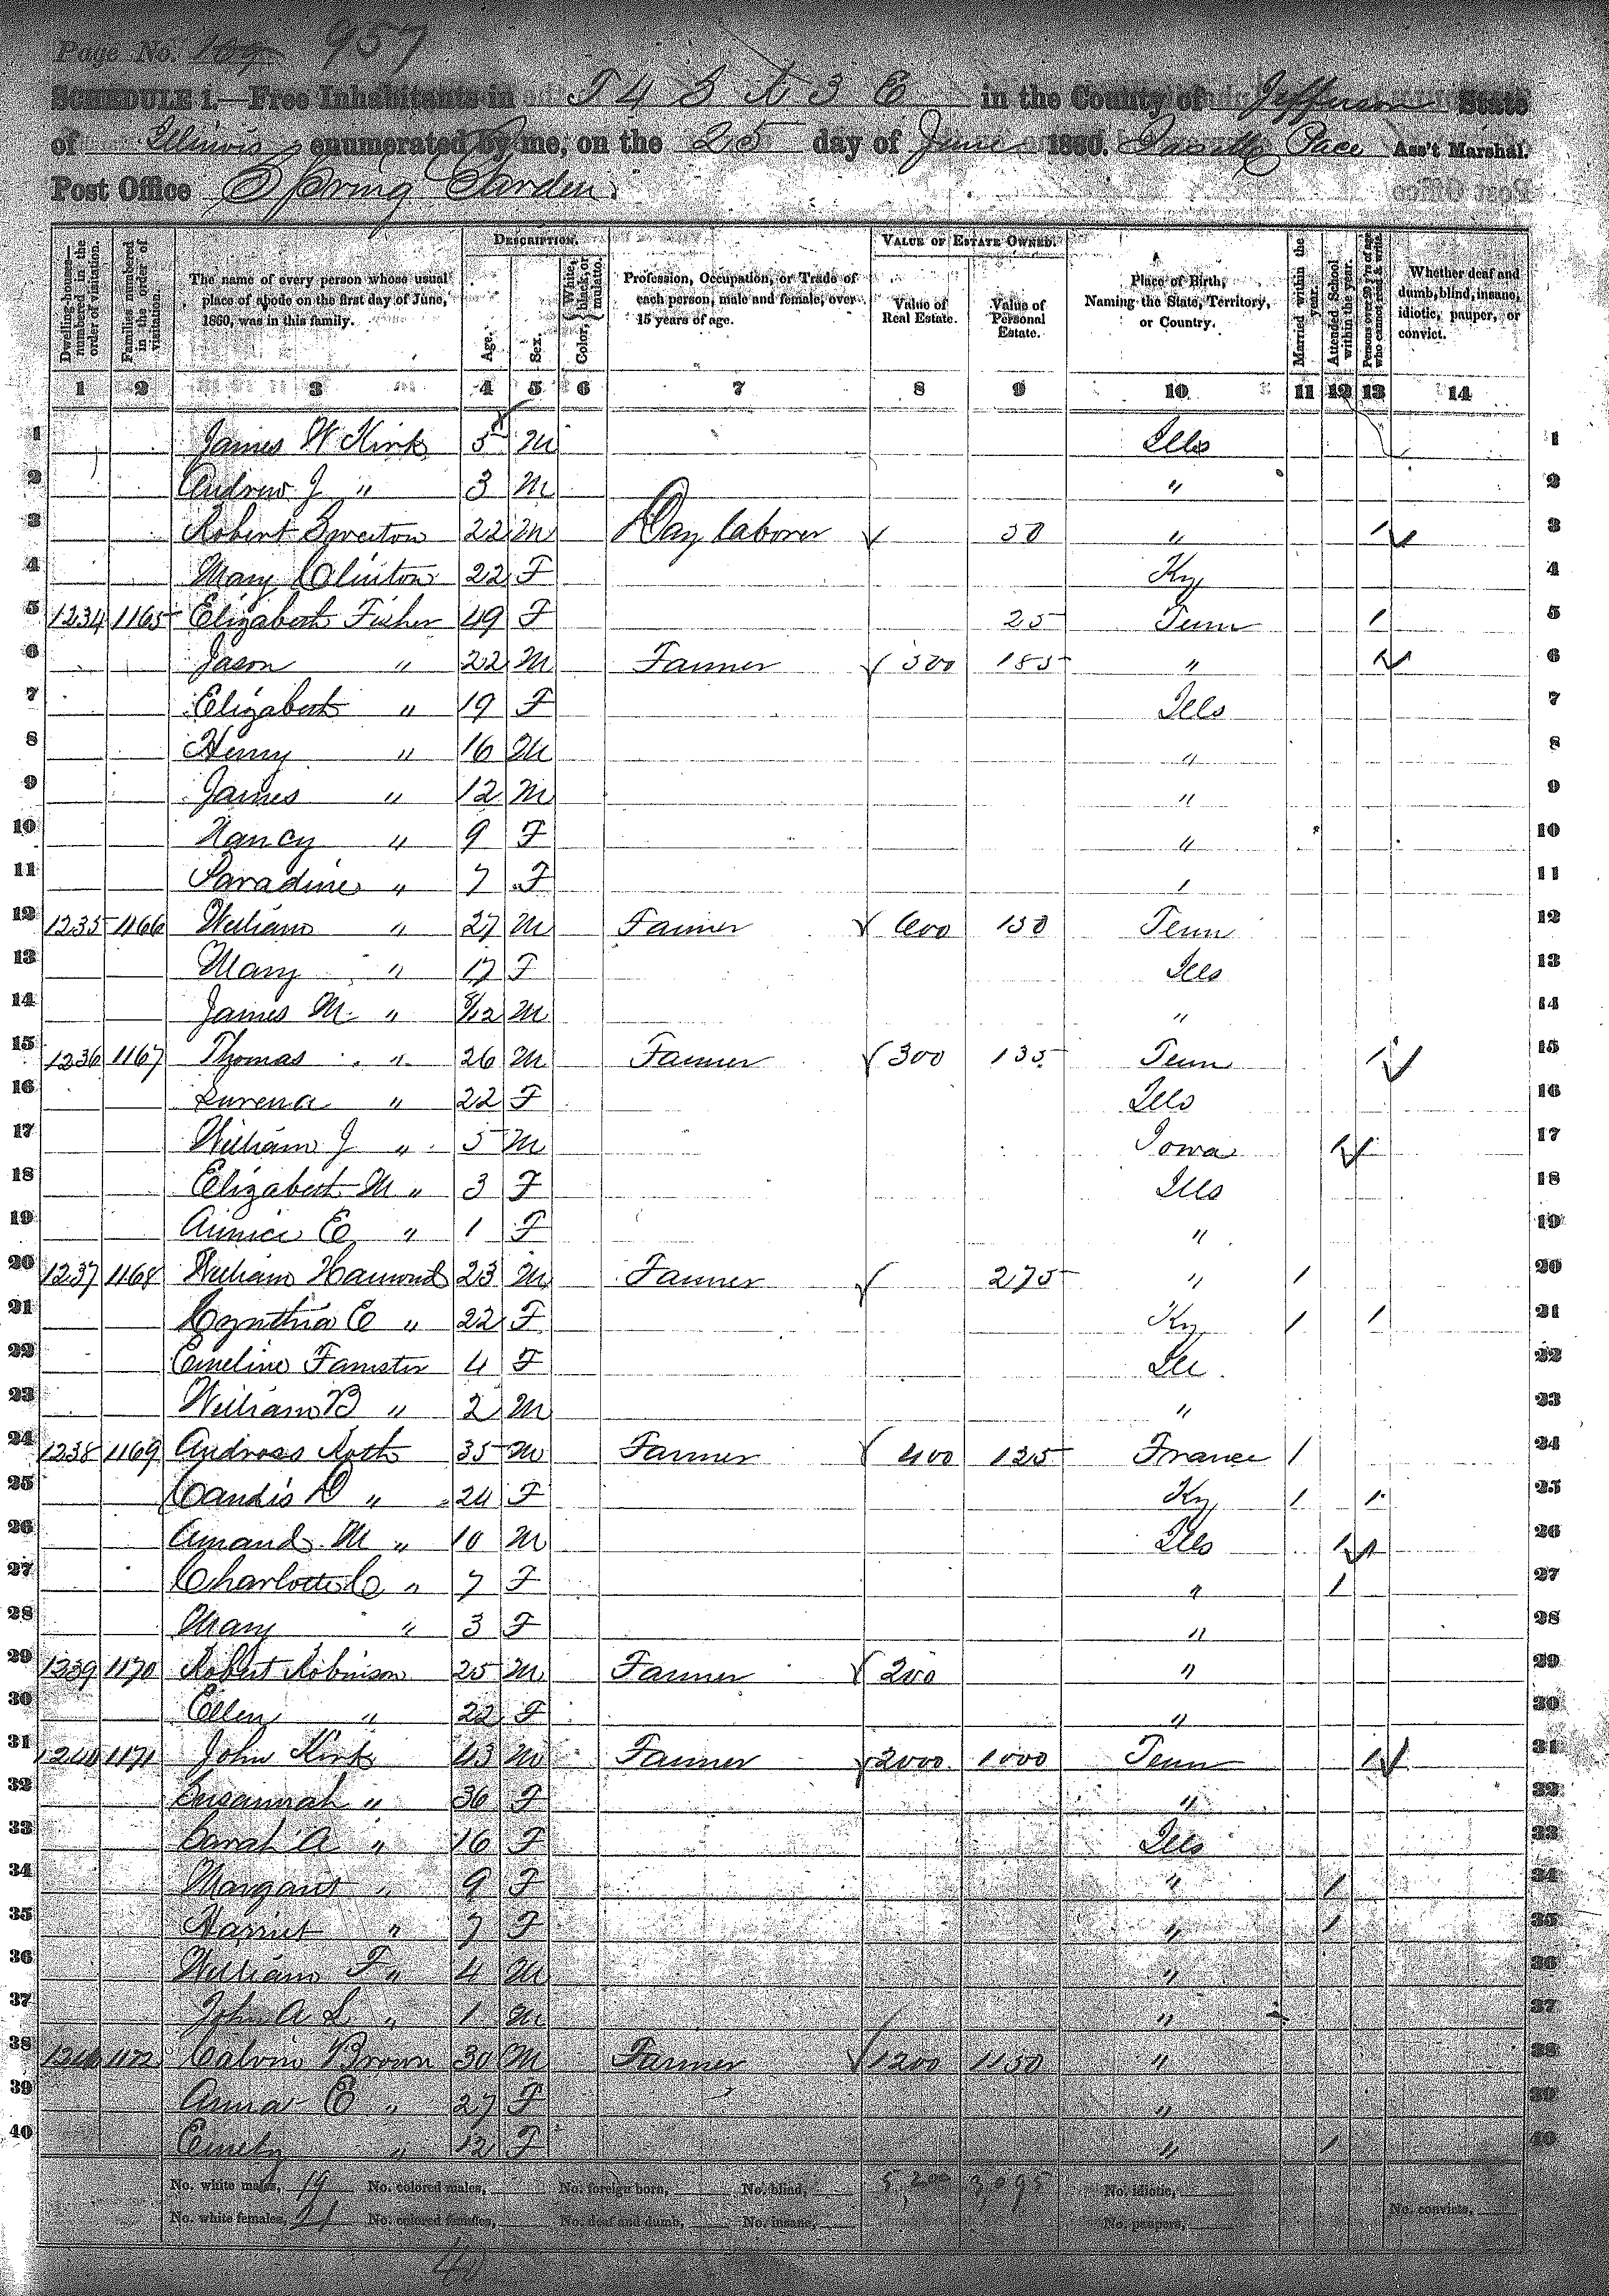 Page No. 109 957
SCHEDULE 1.—Free Inhabitants in T 4 S R 3 E in the County of Jefferson State
of Illinois enumerated by me, on the 25 day of June 1860. Pace Ass't Marshal.
Post Office Spring Garden
Dwelling-houses—numbered in the order of visitation.
Families numbered in the order of visitation.
The name of every person whose usual place of abode on the first day of June, 1860, was in this family.
DESCRIPTION.
Age.
Sex.
Color, {White, black, or mulatto.
Profession, Occupation, or Trade of each person, male and female, over 15 years of age.
VALUE OF ESTATE OWNED.
Value of Real Estate.
Value of Personal Estate.
Place of Birth, Naming the State, Territory, or Country.
Married within the year.
Attended School within the year.
Persons over 20 y'rs of age who cannot read & write.
Whether deaf and dumb, blind, insane, idiotic, pauper, or convict.
1 2 3 4 5 6 7 8 9 10 11 12 13 14
1 James W Kirk 5 M Ills 1
2 Andrew J " 3 M " 2
3 Robert 22 M Day laborer 50 " / 3
4 Mary Clinton 22 F Ky 4
5 1234 1165 Elizabeth Fisher 49 F 25 Tenn / 5
6 Jason " 22 M Farmer 300 185 " / 6
7 Elizabeth " 19 F Ills 7
8 Henry " 16 M " 8
9 James " 12 M " 9
10 Nancy " 9 F " 10
11 Paradine " 7 F " 11
12 1235 1166 William " 27 M Farmer 600 150 Tenn 12
13 Mary " 17 F Ills 13
14 James M " 8/12 M " 14
15 1236 1167 Thomas " 26 M Farmer 300 135 Tenn / 15
16 Surena " 22 F Ills 16
17 William J " 5 M Iowa / 17
18 Elizabeth M " 3 F Ills 18
19 E " 1 F " 19
20 1237 1168 William Hamond 23 M Farmer 275 " / 20
21 Cynthia E " 22 F Ky / / 21
22 Emeline 4 F Ill 22
23 William B " 2 M " 23
24 1238 1169 Andross Roth 35 M Farmer 400 125 France / 24
25 Candis D " 24 F Ky / / 25
26 Amand M " 10 M Ills / 26
27 Charlotte C " 7 F " / 27
28 Mary " 3 F " 28
29 1239 1170 Robert Robinson 25 M Farmer 200 " 29
30 Ellen " 22 F " 30
31 1240 1171 John Kirk 43 M Farmer 2000 1000 Tenn / 31
32 Susannah " 36 F " 32
33 Sarah A " 16 F Ills 33
34 Margaret " 9 F " / 34
35 Harriet " 7 F " / 35
36 William F " 4 M " 36
37 John A L " 1 M " 37
38 1172 Calvin Brown 30 M Farmer 1200 1150 " 38
39 Anna E " 27 F " 39
40 Emely " 12 F " / 40
No. white males, 19 No. colored males, No. foreign born, No. blind, 5,200 3,095 No. idiotic,
No. white females, 21 No. colored females, No. deaf and dumb, No. insane, No. paupers, No. convicts,
40